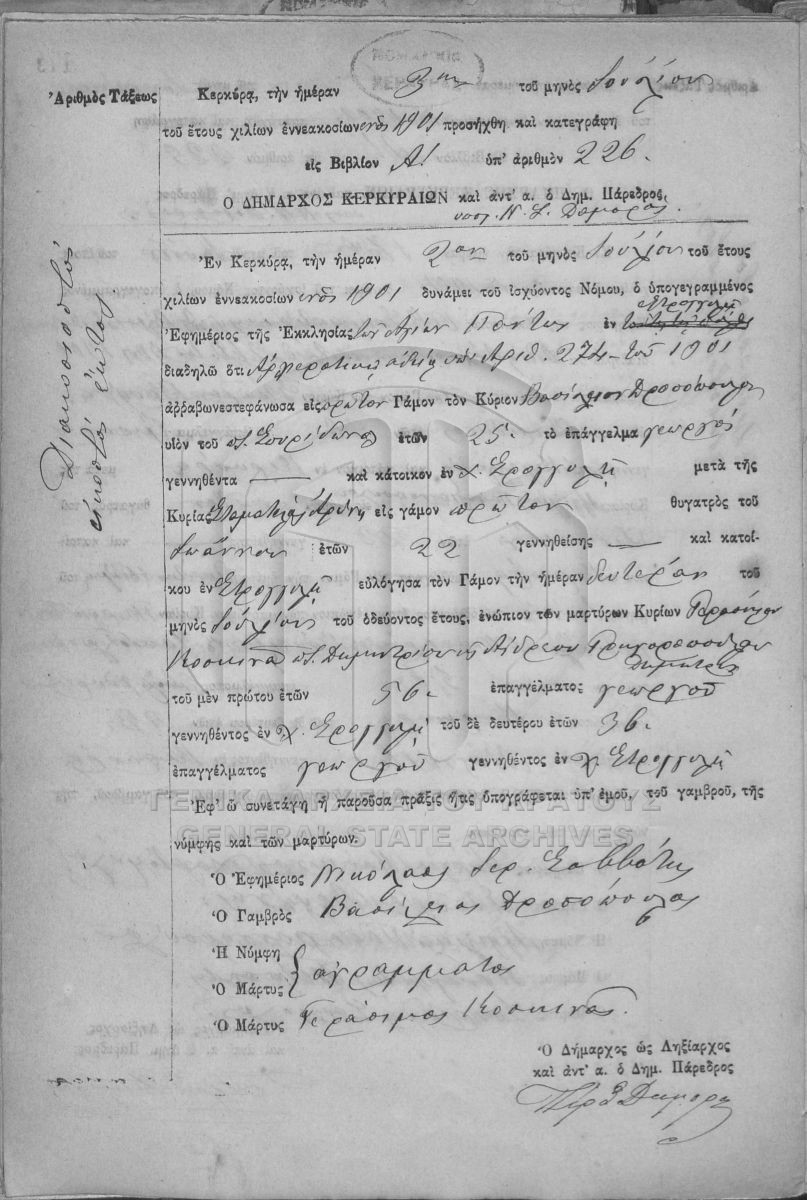 ΝΟΜΑΡΧΙΑ
ΚΕΡΚΥΡΑΣ
Ἀριθμὸς Τάξεως
Διακοσιοστός
εἰκοστός ἕκτος
Κερκύρᾳ, τὴν ἡμέραν 2αν τοῦ μηνὸς Ἰουλίου
τοῦ ἔτους χιλίων ἐννεακοσίων ἑνός 1901 προσήχθη καὶ κατεγράφη
εἰς Βιβλίον Α' ὑπ' ἀριθμὸν 226.
Ὁ ΔΗΜΑΡΧΟΣ ΚΕΡΚΥΡΑΙΩΝ καὶ ἀντ' α. ὁ Δημ. Πάρεδρος,
Ἐν Κερκύρᾳ, τὴν ἡμέραν 2αν τοῦ μηνὸς Ἰουλίου τοῦ ἔτους
χιλίων ἐννεακοσίων ἑνός 1901 δυνάμει τοῦ ἰσχύοντος Νόμου, ὁ ὑπογεγραμμένος
Ἐφημέριος τῆς Ἐκκλησίας τῶν Ἁγίων Πάντων ἐν Στρογγυλῇ
διαδηλῶ ὅτι Ἀρχιερατικῇ ἀδείᾳ ὑπ' Ἀριθ. 274 τοῦ 1901
ἀῤῥαβωνεστεφάνωσα εἰς πρῶτον Γάμον τὸν Κύριον Βασίλειον Δροσόπουλον
υἱὸν τοῦ π. Σπυρίδωνος ἐτῶν 25 τὸ ἐπάγγελμα γεωργός
γεννηθέντα — καὶ κάτοικον ἐν χ. Στρογγυλῇ μετὰ τῆς
Κυρίας Σταματέλας εἰς γάμον πρῶτον θυγατρὸς τοῦ
Ἰωάννου ἐτῶν 22 γεννηθείσης — καὶ κατοί-
κου ἐν Στρογγυλῇ εὐλόγησα τὸν Γάμον τὴν ἡμέραν δευτέραν τοῦ
μηνὸς Ἰουλίου τοῦ ὁδεύοντος ἔτους, ἐνώπιον τῶν μαρτύρων Κυρίων Γερασίμου
Κοσκινᾶ π. Δημητρίου κ Ἀνδρέου Γρηγοροπούλου
Δημητρίου
τοῦ μὲν πρώτου ἐτῶν 56 ἐπαγγέλματος γεωργοῦ
γεννηθέντος ἐν χ. Στρογγυλῇ τοῦ δὲ δευτέρου ἐτῶν 36
ἐπαγγέλματος γεωργοῦ γεννηθέντος ἐν χ. Στρογγυλῇ
ΓΕΝΙΚΑ ΑΡΧΕΙΑ ΤΟΥ ΚΡΑΤΟΥΣ
Ἐφ' ᾧ συνετάγη ἡ παροῦσα πρᾶξις ἥτις ὑπογράφεται ὑπ' ἐμοῦ, τοῦ γαμβροῦ, τῆς
GENERAL STATE ARCHIVES
νύμφης καὶ τῶν μαρτύρων.
Ὁ Ἐφημέριος Νικόλαος Ἱερ. Σαββάτης
Ὁ Γαμβρὸς Βασίλειος Δροσόπουλος
Ἡ Νύμφη
ἀγράμματοι
Ὁ Μάρτυς
Ὁ Μάρτυς Γεράσιμος Κοσκινᾶς.
Ὁ Δήμαρχος ὡς Ληξίαρχος
καὶ ἀντ' α. ὁ Δημ. Πάρεδρος